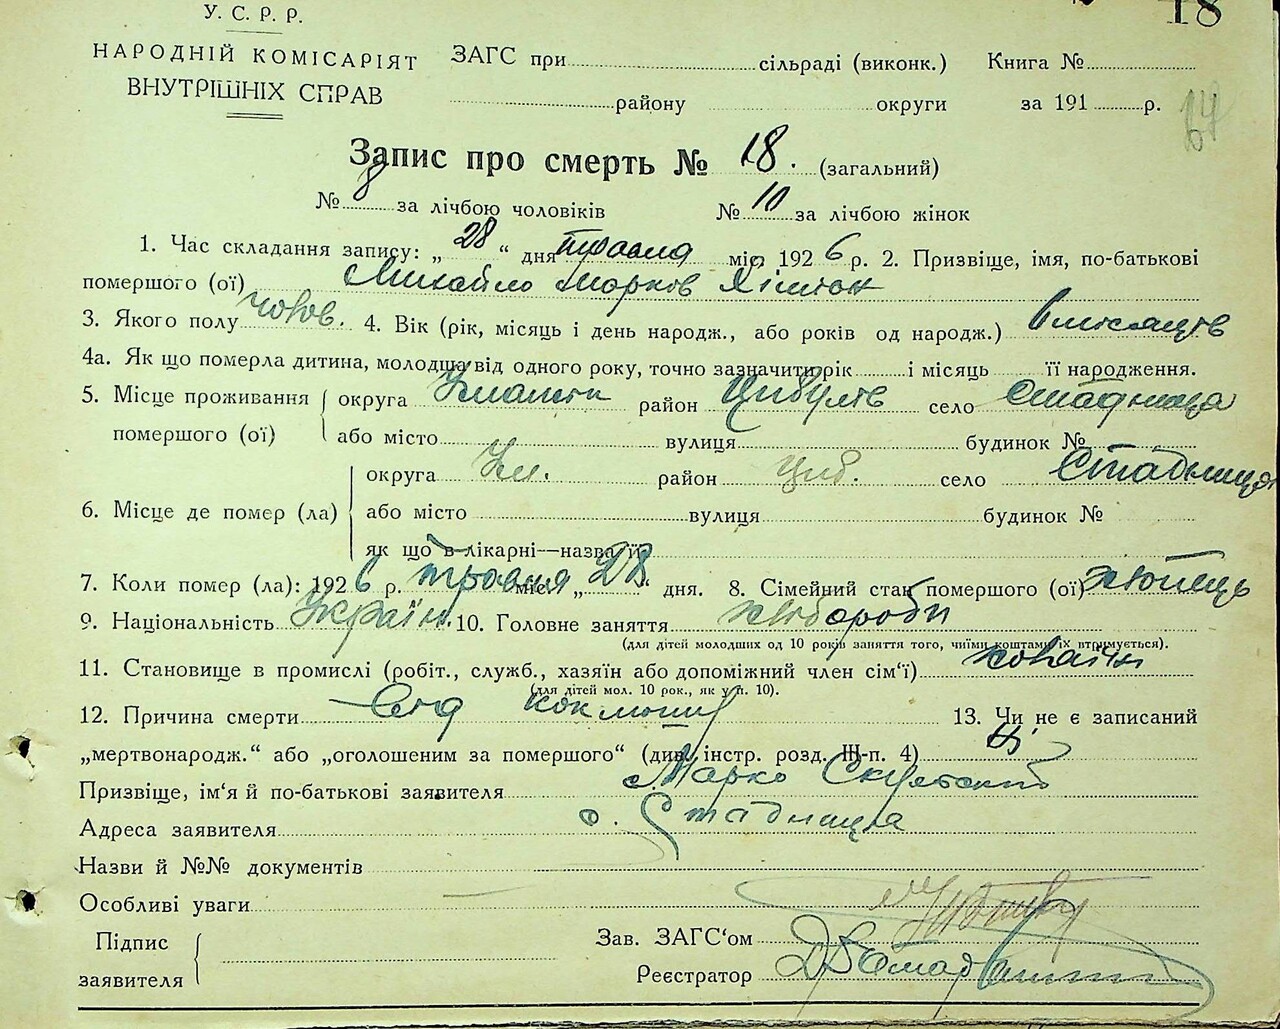 18
У. С. Р. Р.
НАРОДНІЙ КОМІСАРІЯТ
ВНУТРІШНІХ СПРАВ
ЗАГС при сільраді (виконк.) Книга №
району округи за 191 р.
64
Запис про смерть № 18. (загальний)
№ 8 за лічбою чоловіків № 10 за лічбою жінок
1. Час складання запису: „ 28 “ дня травня міс. 1926 р. 2. Призвіще, імя, по-батькові
помершого (ої) Михайло Марков
3. Якого полу чолов. 4. Вік (рік, місяць і день народж., або років од народж.) місяців
4а. Як що померла дитина, молодша від одного року, точно зазначити рік і місяць її народження.
5. Місце проживання помершого (ої) округа Уманськ район Цибулів село Стадниця
або місто вулиця будинок №
6. Місце де помер (ла) округа Ум. район Циб. село Стадниця
або місто вулиця будинок №
як що в лікарні—назва її
7. Коли помер (ла): 1926 р. травня міс. „ 28 “ дня. 8. Сімейний стан помершого (ої) хлопець
9. Національність Україн. 10. Головне заняття хлібороби
(для дітей молодших од 10 років заняття того, чиїми коштами їх втримується).
11. Становище в промислі (робіт., служб., хазяїн або допоміжний член сім‘ї)
(для дітей мол. 10 рок., як у п. 10).
12. Причина смерти Від коклюшу 13. Чи не є записаний
„мертвонародж.“ або „оголошеним за помершого“ (див. інстр. розд. Ш-п. 4) Ні
Призвіще, ім‘я й по-батькові заявителя Марко
Адреса заявителя с. Стадниця
Назви й №№ документів
Особливі уваги —
Підпис заявителя
Зав. ЗАГС‘ом
Реєстратор